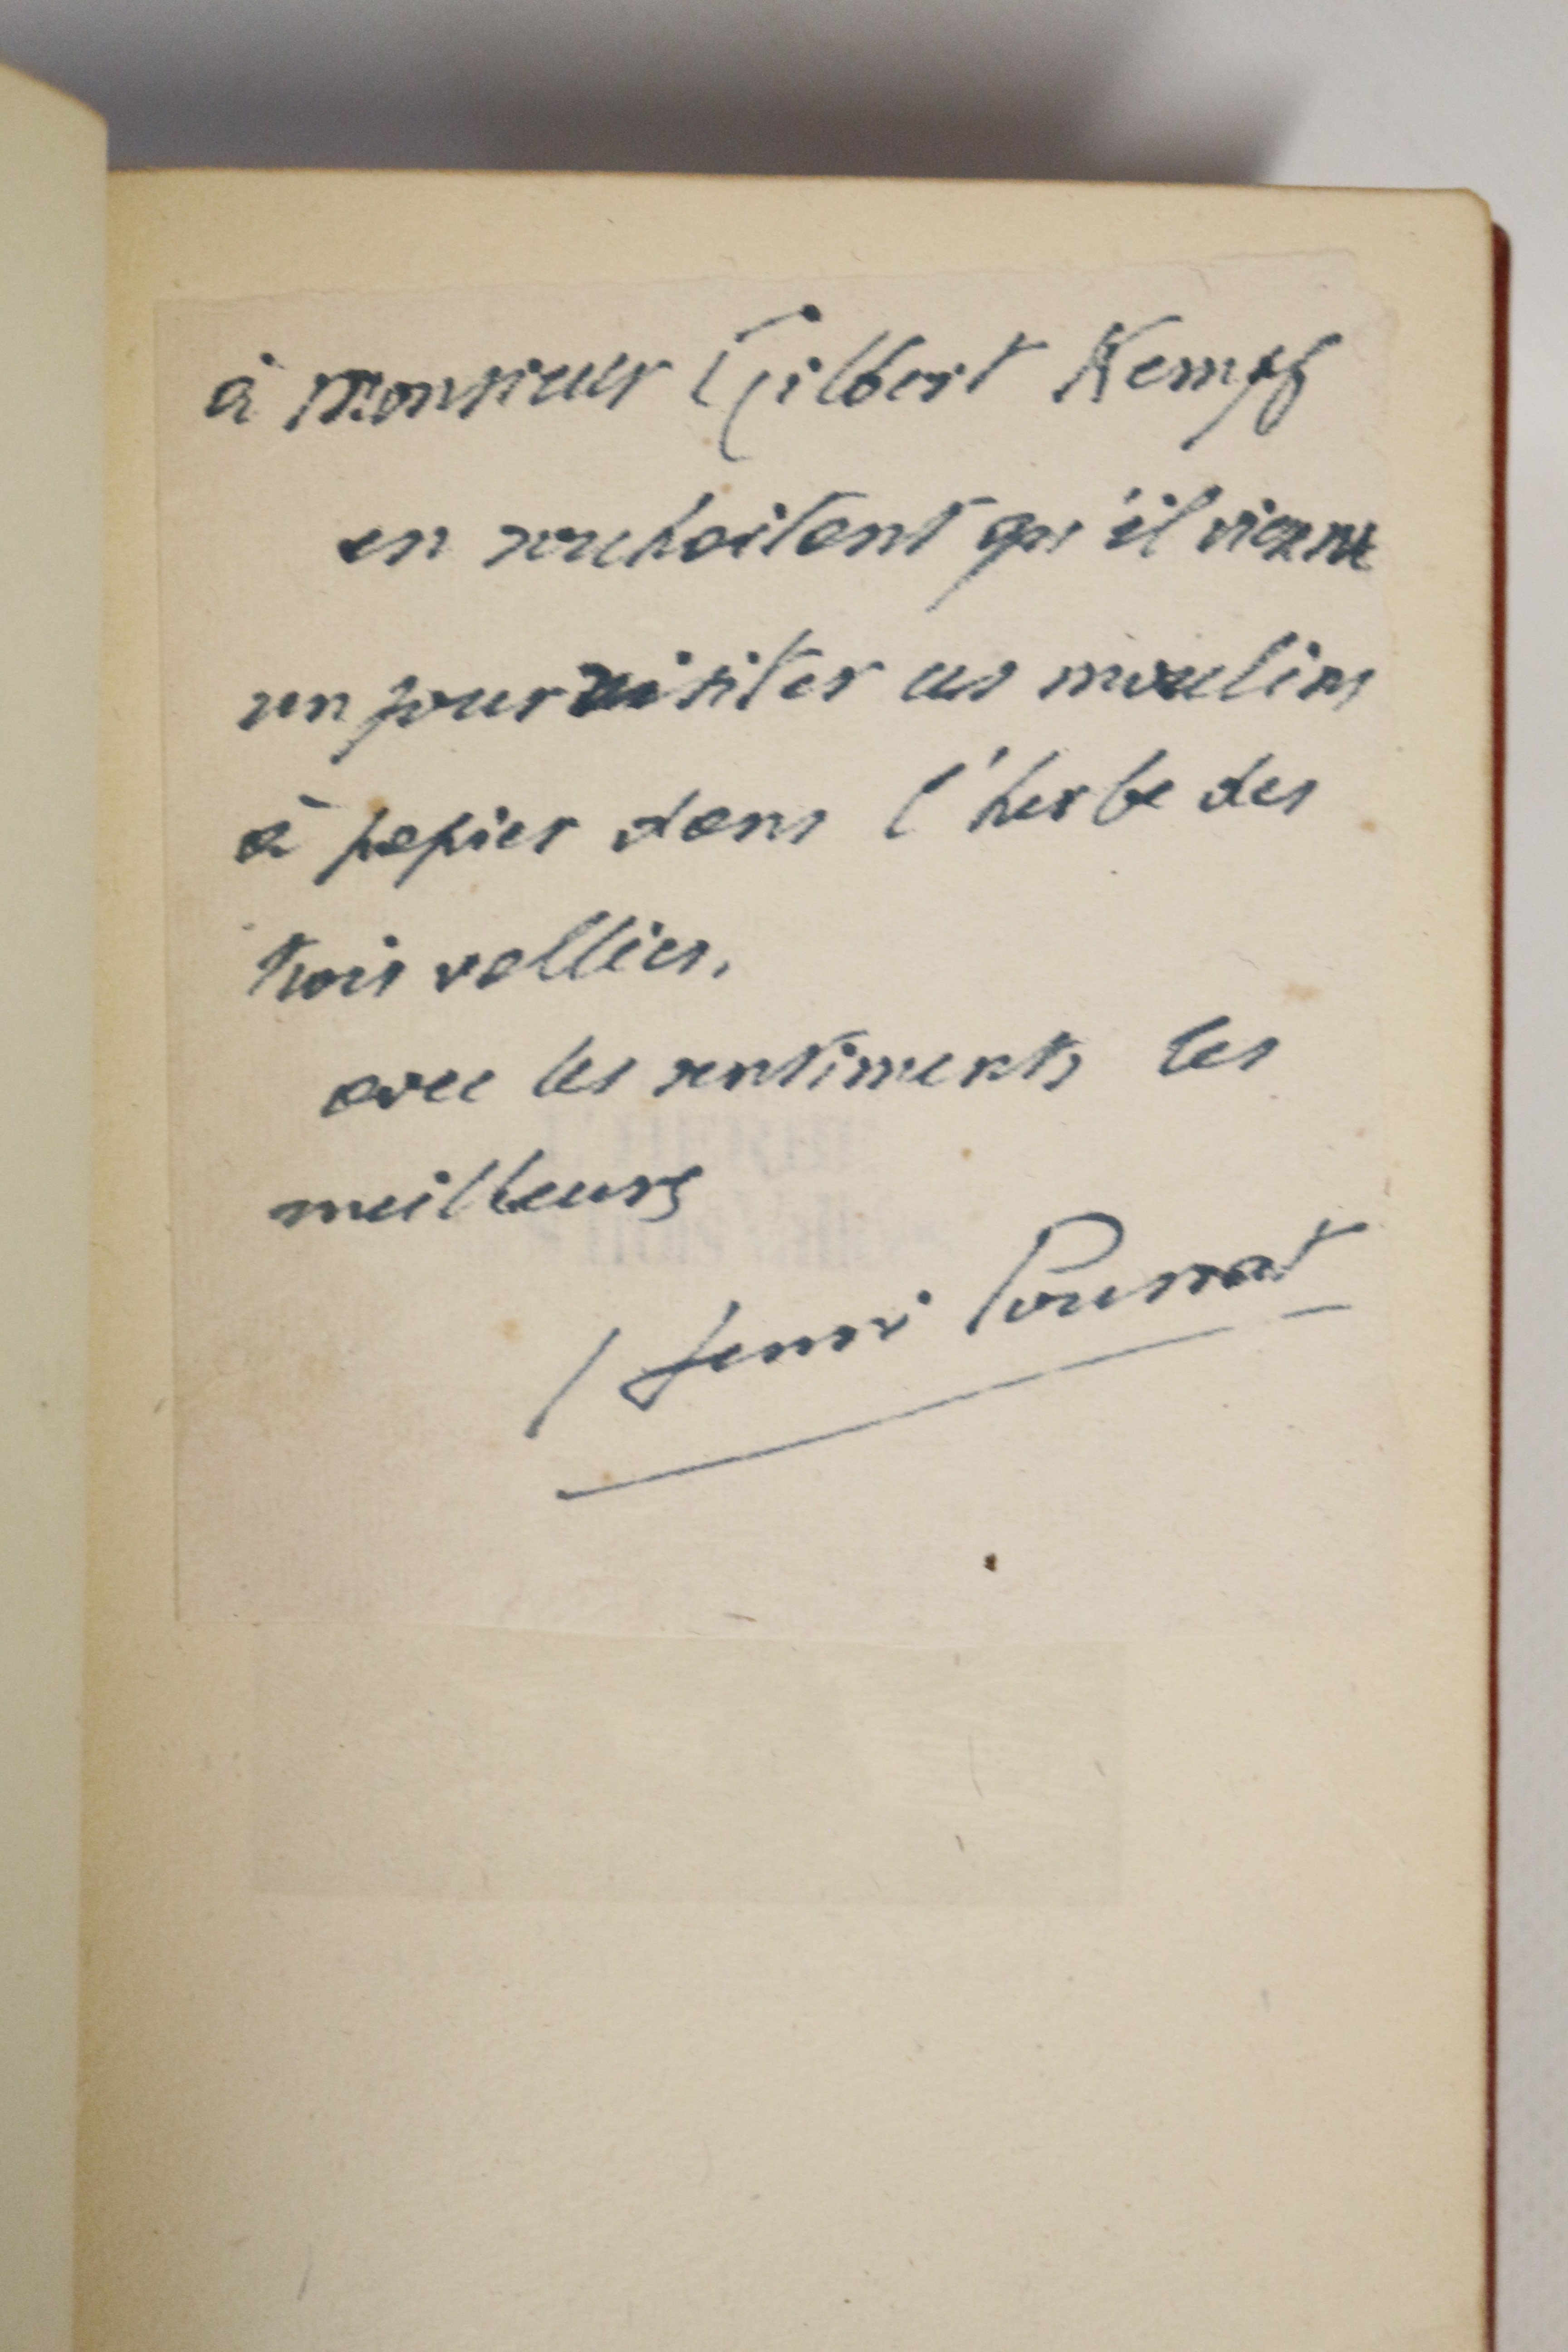 à Monsieur Gilbert Kempf
en souhaitant qu'il vienne
un jour visiter ces moulins
à papier dans l'herbe des
trois vallées,
avec les sentiments les
meilleurs
Henri Pourrat
L'HERBE
des Trois Vallées